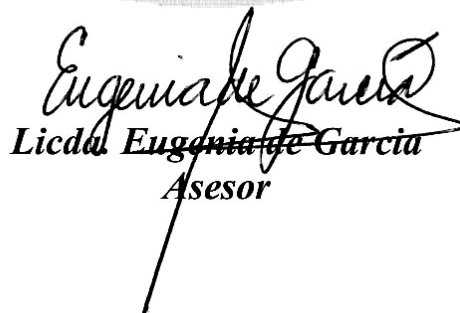 Eugenia de García
Licda. Eugenia de Garcia
Asesor